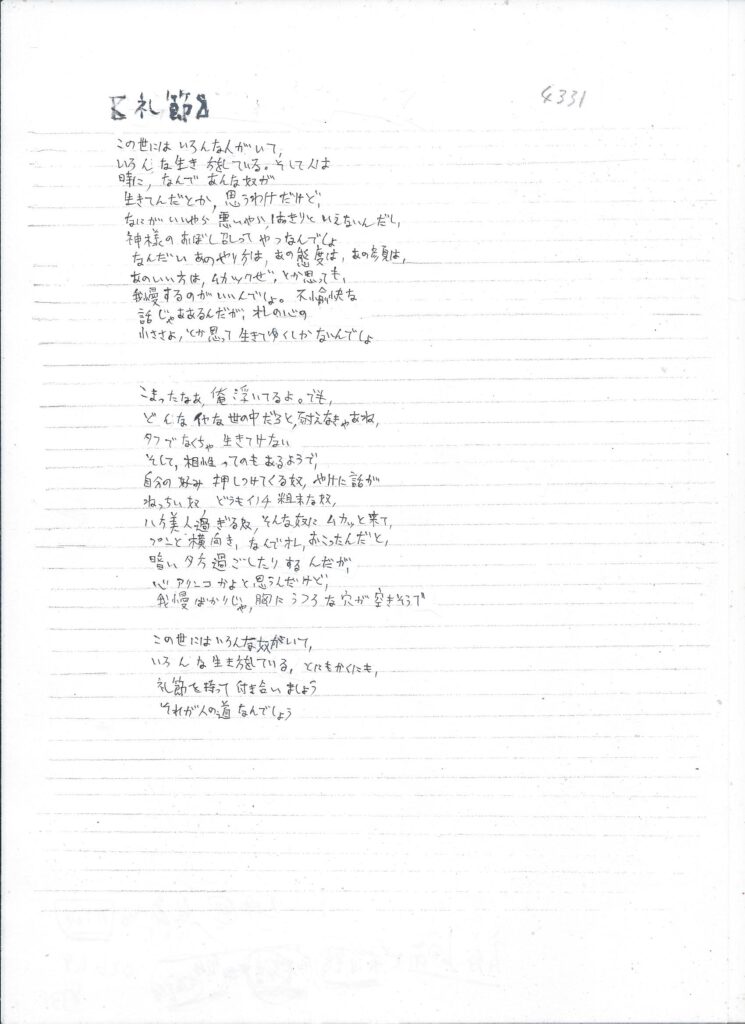 【礼節】
4331
この世には いろんな人がいて、
いろんな生き方をしている。そして人は
時に、なんで あんな奴が
生きてんだとか、思うわけだけど、
なにがいいやら 悪いやら、はっきりと いえないんだし、
神様の おぼし召しって やつなんでしょ
なんだい あのやり方は、あの態度は、あの顔は、
あのいい方は、ムカックぜ、とか思っても、
我慢するのがいいんでしょ。不愉快な
話じゃああるんだが、オレの心の
小ささよ、とか思って 生きてゆくしかないんでしょ
こまったなあ、俺 浮いてるよ。でも、
どんな 世の中だろと、耐えなきゃあね、
タフでなくちゃ 生きてけない
そして、相性ってのも あるようで、
自分の好み 押しつけてくる奴、やけに話が
ねっちい奴、どうもイノチ 粗末な奴、
八方美人過ぎる奴、そんな奴に ムカッと来て、
プンと横向き、なんでオレ、おこったんだと、
暗い 夕方 過ごしたり するんだが、
心 アリンコ かよと思うんだけど、
我慢ばかりじゃ、胸に うつろな穴が 空きそうで
この世にはいろんな奴がいて、
いろんな生き方をしている、とにもかくにも、
礼節を持って 付き合いましょう
それが人の道なんでしょう